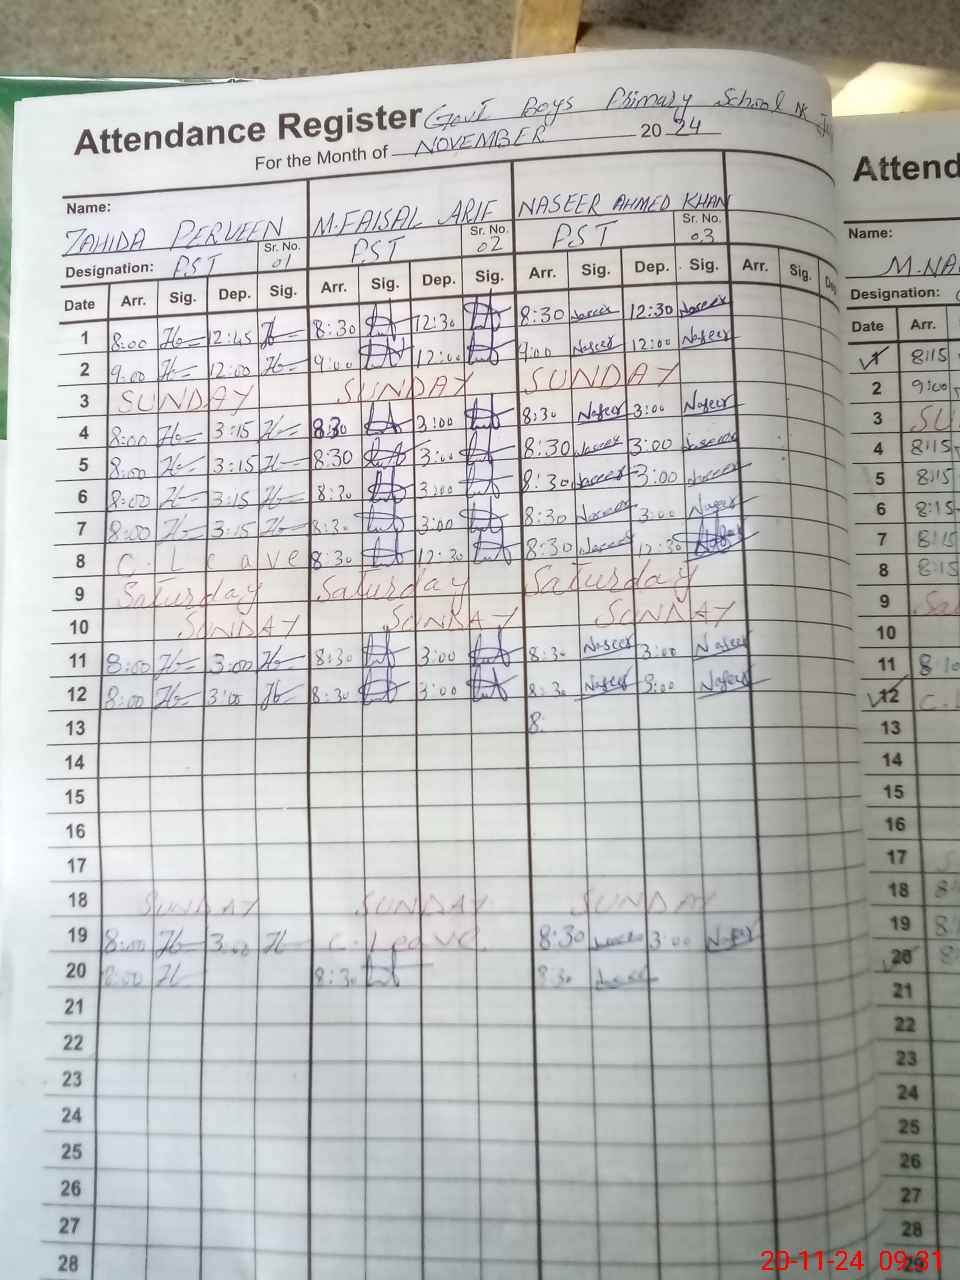 Attendance Register Govt Boys Primary School
For the Month of NOVEMBER 2024
Name:
ZAHIDA PERVEEN M.FAISAL ARIF NASEER AHMED KHAN
Designation: PST Sr. No. 01 PST Sr. No. 02 PST Sr. No. 03
Date Arr. Sig. Dep. Sig. Arr. Sig. Dep. Sig. Arr. Sig. Dep. Sig. Arr. Sig.
1 8:00 12:45 8:30 12:30 8:30 Naseer 12:30 Naseer
2 9:00 12:00 9:00 12:00 9:00 Naseer 12:00 Naseer
3 SUNDAY SUNDAY SUNDAY
4 8:00 3:15 8:30 3:00 8:30 Naseer 3:00 Naseer
5 8:00 3:15 8:30 3:00 8:30 Naseer 3:00 Naseer
6 8:00 3:15 8:30 3:00 8:30 Naseer 3:00 Naseer
7 8:00 3:15 8:30 3:00 8:30 Naseer 3:00 Naseer
8 C. Leave 8:30 12:30 8:30 Naseer 12:30
9 Saturday Saturday Saturday
10 SUNDAY SUNDAY SUNDAY
11 8:00 3:00 8:30 3:00 8:30 Naseer 3:00 Naseer
12 8:00 3:00 8:30 3:00 8:30 Naseer 3:00 Naseer
13 8:
14
15
16
17
18 SUNDAY SUNDAY SUNDAY
19 8:00 3:00 C. Leave 8:30 Naseer 3:00 Naseer
20 8:00 8:30 8:30 Naseer
21
22
23
24
25
26
27
28
Attend
Name:
Designation:
Date Arr.
1 8:15
2 9:00
3
4 8:15
5 8:15
6 8:15
7 8:15
8 8:15
9
10
11 8:10
12
13
14
15
16
17
18
19
20
21
22
23
24
25
26
27
28
20-11-24 09:31